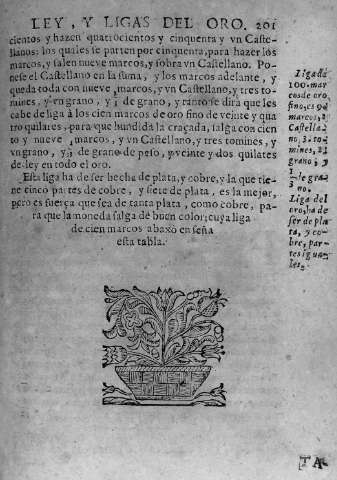 LEY, Y LIGAS DEL ORO. 201
cientos y hazen quatrocientos y cinquenta y vn Caste-
llanos: los quales se parten por cinquenta, para hazer los
marcos, y salen nueve marcos, y sobra vn Castellano. Po-
nese el Castellano en la suma, y los marcos adelante, y
queda toda con nueve marcos, y vn Castellano, y tres to-
mines, y vn grano, y de grano, y tanto se dira que les
cabe de liga à los cien marcos de oro fino de veinte y qua
tro quilates, para que hundida la craçada, salga con cien
to y nueve marcos, y vn Castellano, y tres tomines, y
vn grano, y de grano de peso, y veinte y dos quilates
de ley en todo el oro.
Esta liga ha de ser hecha de plata, y cobre, y la que tie-
ne cinco partes de cobre, y siete de plata, es la mejor,
pero es fuerça que sea de tanta plata, como cobre, pa-
ra que la moneda salga de buen color; cuya liga
de cien marcos abaxo enseña
esta tabla.
Liga de
100. mar
cos de oro,
fino, es 9.
marcos, 1
Castella
no, 3. to-
mines, 
grano; y
de gra-
no.
Liga del
oro, ha de
ser de pla
ta, y co-
bre, par-
tes igua-
les.
TA-